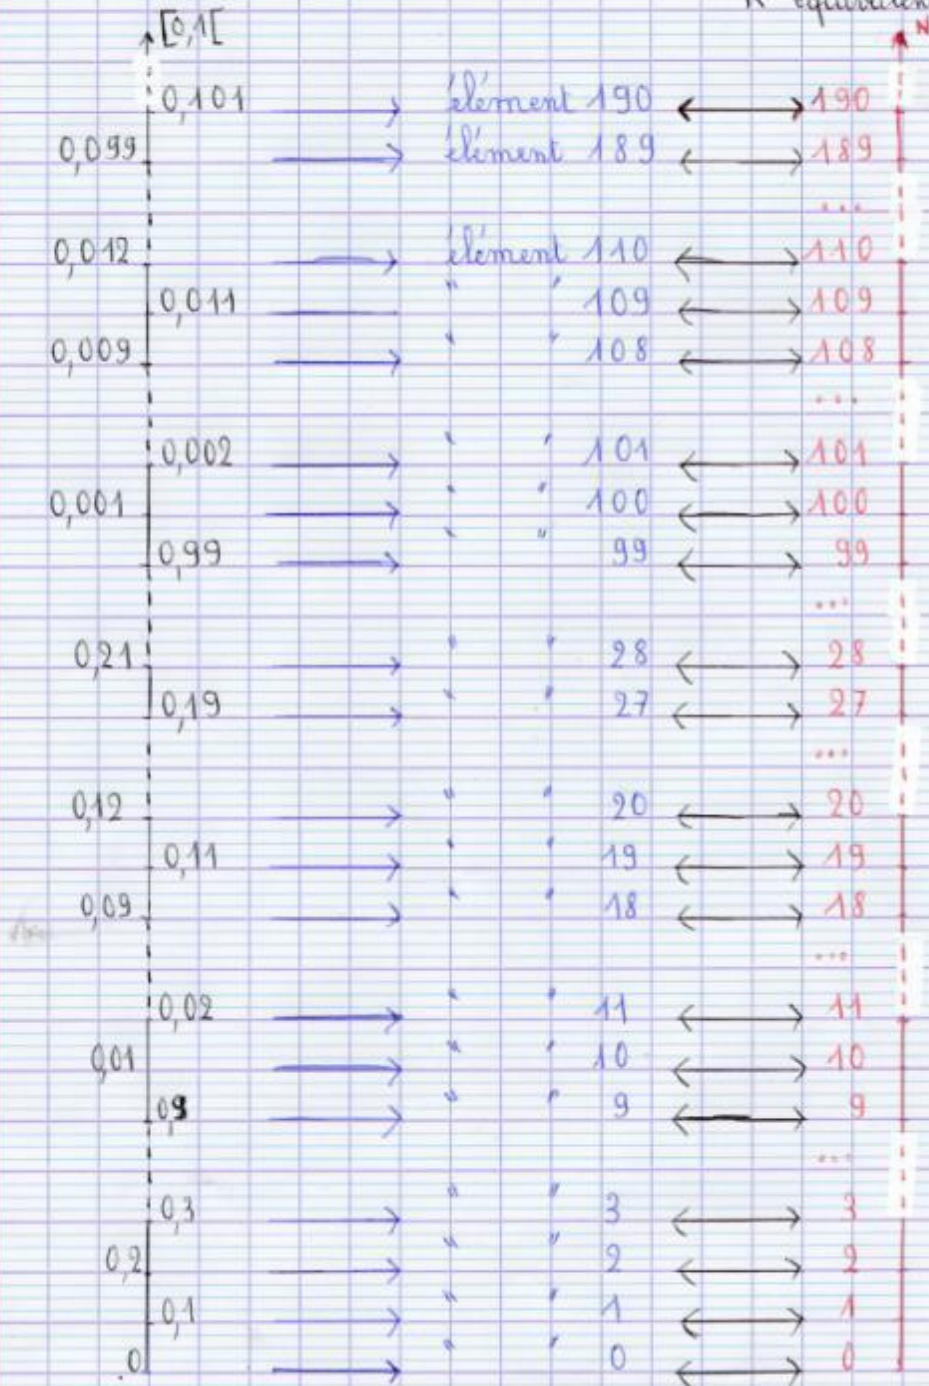 R équivalen
[0,1[ N
0,101 élément 190 190
0,099 élément 189 189
...
0,012 élément 110 110
0,011 " " 109 109
0,009 " " 108 108
...
0,002 " " 101 101
0,001 " " 100 100
0,99 " " 99 99
...
0,21 " " 28 28
0,19 " " 27 27
...
0,12 " " 20 20
0,11 " " 19 19
0,09 " " 18 18
...
0,02 " " 11 11
0,01 " " 10 10
0,9 " " 9 9
...
0,3 " " 3 3
0,2 " " 2 2
0,1 " " 1 1
0 " " 0 0